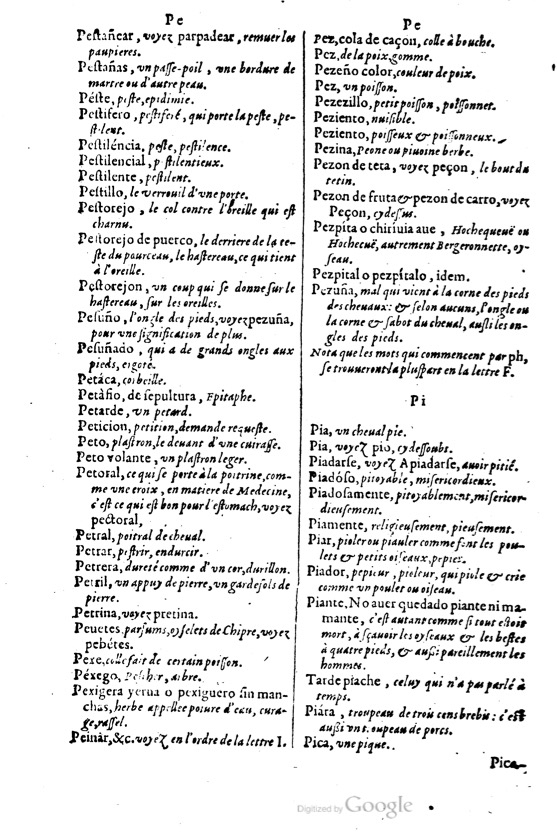 Pe
Pestañear, voyez parpadear, remuer les
paupieres.
Pestañas, vn passe-poil, vne bordure de
martre ou d'autre peau.
Péste, peste, epidimie.
Pestifero, pestiferé, qui porte la peste, pe-
stilent.
Pestiléncia, peste, pestilence.
Pestilencial, pestilentieux.
Pestilente, pestilent.
Pestillo, le verrouil d'vne porte.
Pestorejo, le col contre l'oreille qui est
charnu.
Pestorejo de puerco, le derriere de la te-
ste du pourceau, le hastereau, ce qui tient
à l'oreille.
Pestorejon, vn coup qui se donne sur le
hastereau, sur les oreilles.
Pesuño, l'ongle des pieds, voyez pezuña,
pour vne signification de plus.
Pesuñado, qui a de grands ongles aux
pieds, ergoté.
Petáca, corbeille.
Petáfio, de sepultura, Epitaphe.
Petarde, vn petard.
Peticion, petition, demande requeste.
Peto, plastron, le deuant d'vne cuirasse.
Peto volante, vn plastron leger.
Petoral, ce qui se porte à la poitrine, com-
me vne croix, en matiere de Medecine,
c'est ce qui est bon pour l'estomach, voyez
pectoral,
Petral, poitral de cheual.
Petrar, pestrir, endurcir.
Petrera, dureté comme d'vn cor, durillon.
Petril, vn appuy de pierre, vn gardefols de
pierre.
Petrina, voyez pretina.
Peuetes, parfums, oyselets de Chipre, voyez
pebétes.
Pexe, colle fait de certain poisson.
Péxego, Pescher, arbre.
Pexigera yerua o pexiguero sin man-
chas, herbe appellee poiure d'eau, cura-
ge, rassel.
Peinár, &c. voyez en l'ordre de la lettre I.
Pe
Pez, cola de caçon, colle à bouche.
Pez, de la poix, gomme.
Pezeño color, couleur de poix.
Pez, vn poisson.
Pezezillo, petit poisson, poissonnet.
Peziento, nuisible.
Peziento, poisseux & poissonneux.
Pezina, Peone ou piuoine herbe.
Pezon de teta, voyez peçon, le bout du
tetin.
Pezon de fruta & pezon de carro, voyez
Peçon, cy dessus.
Pezpita o chiriuia aue, Hochequeuë ou
Hochecuë, autrement Bergeronnette, oy-
seau.
Pezpital o pezpítalo, idem.
Pezuña, mal qui vient à la corne des pieds
des cheuaux: & selon aucuns, l'ongle ou
la corne & sabot du cheual, aussi les on-
gles des pieds.
Nota que les mots qui commencent par ph,
se trouueront la pluspart en la lettre F.
Pi
Pia, vn cheual pie.
Pia, voyez pio, cy dessoubs.
Piadarse, voyez Apiadarse, auoir pitié.
Piadóso, pitoyable, misericordieux.
Piadosamente, pitoyablement, misericor-
dieusement.
Piamente, religieusement, pieusement.
Piar, pioler ou piauler comme font les pou-
lets & petits oiseaux, pepier.
Piador, pepieur, pioleur, qui piole & crie
comme vn poulet ou oiseau.
Piante, No auer quedado piante ni ma-
mante, c'est autant comme si tout estoit
mort, à sçauoir les oyseaux & les bestes
à quatre pieds, & aussi pareillement les
hommes.
Tarde piache, celuy qui n'a pas parlé à
temps.
Piára, troupeau de trois cens brebis: c'est
aussi vn troupeau de porcs.
Pica, vne pique.
Pica-
Digitized by Google